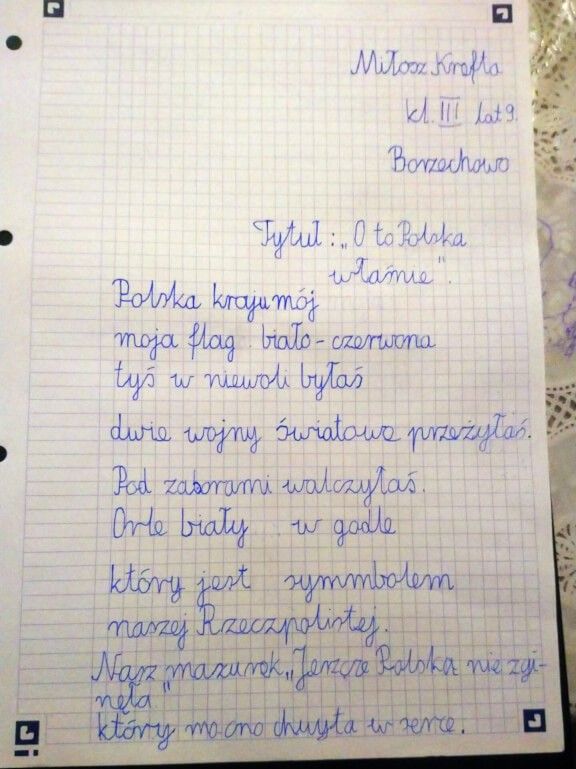 Miłosz Krefta
kl. III lat 9.
Borzechowo
Tytuł: „O to Polska
właśnie".
Polska kraju mój
moja flag biało-czerwona
tyś w niewoli byłaś
dwie wojny światowe przeżyłaś.
Pod zaborami walczyłaś.
Orle biały w godle
który jest symmbolem
naszej Rzeczpolistej.
Nasz mazurek „Jeszcze Polska nie zgi-
nęła"
który mocno chwyta w serce.